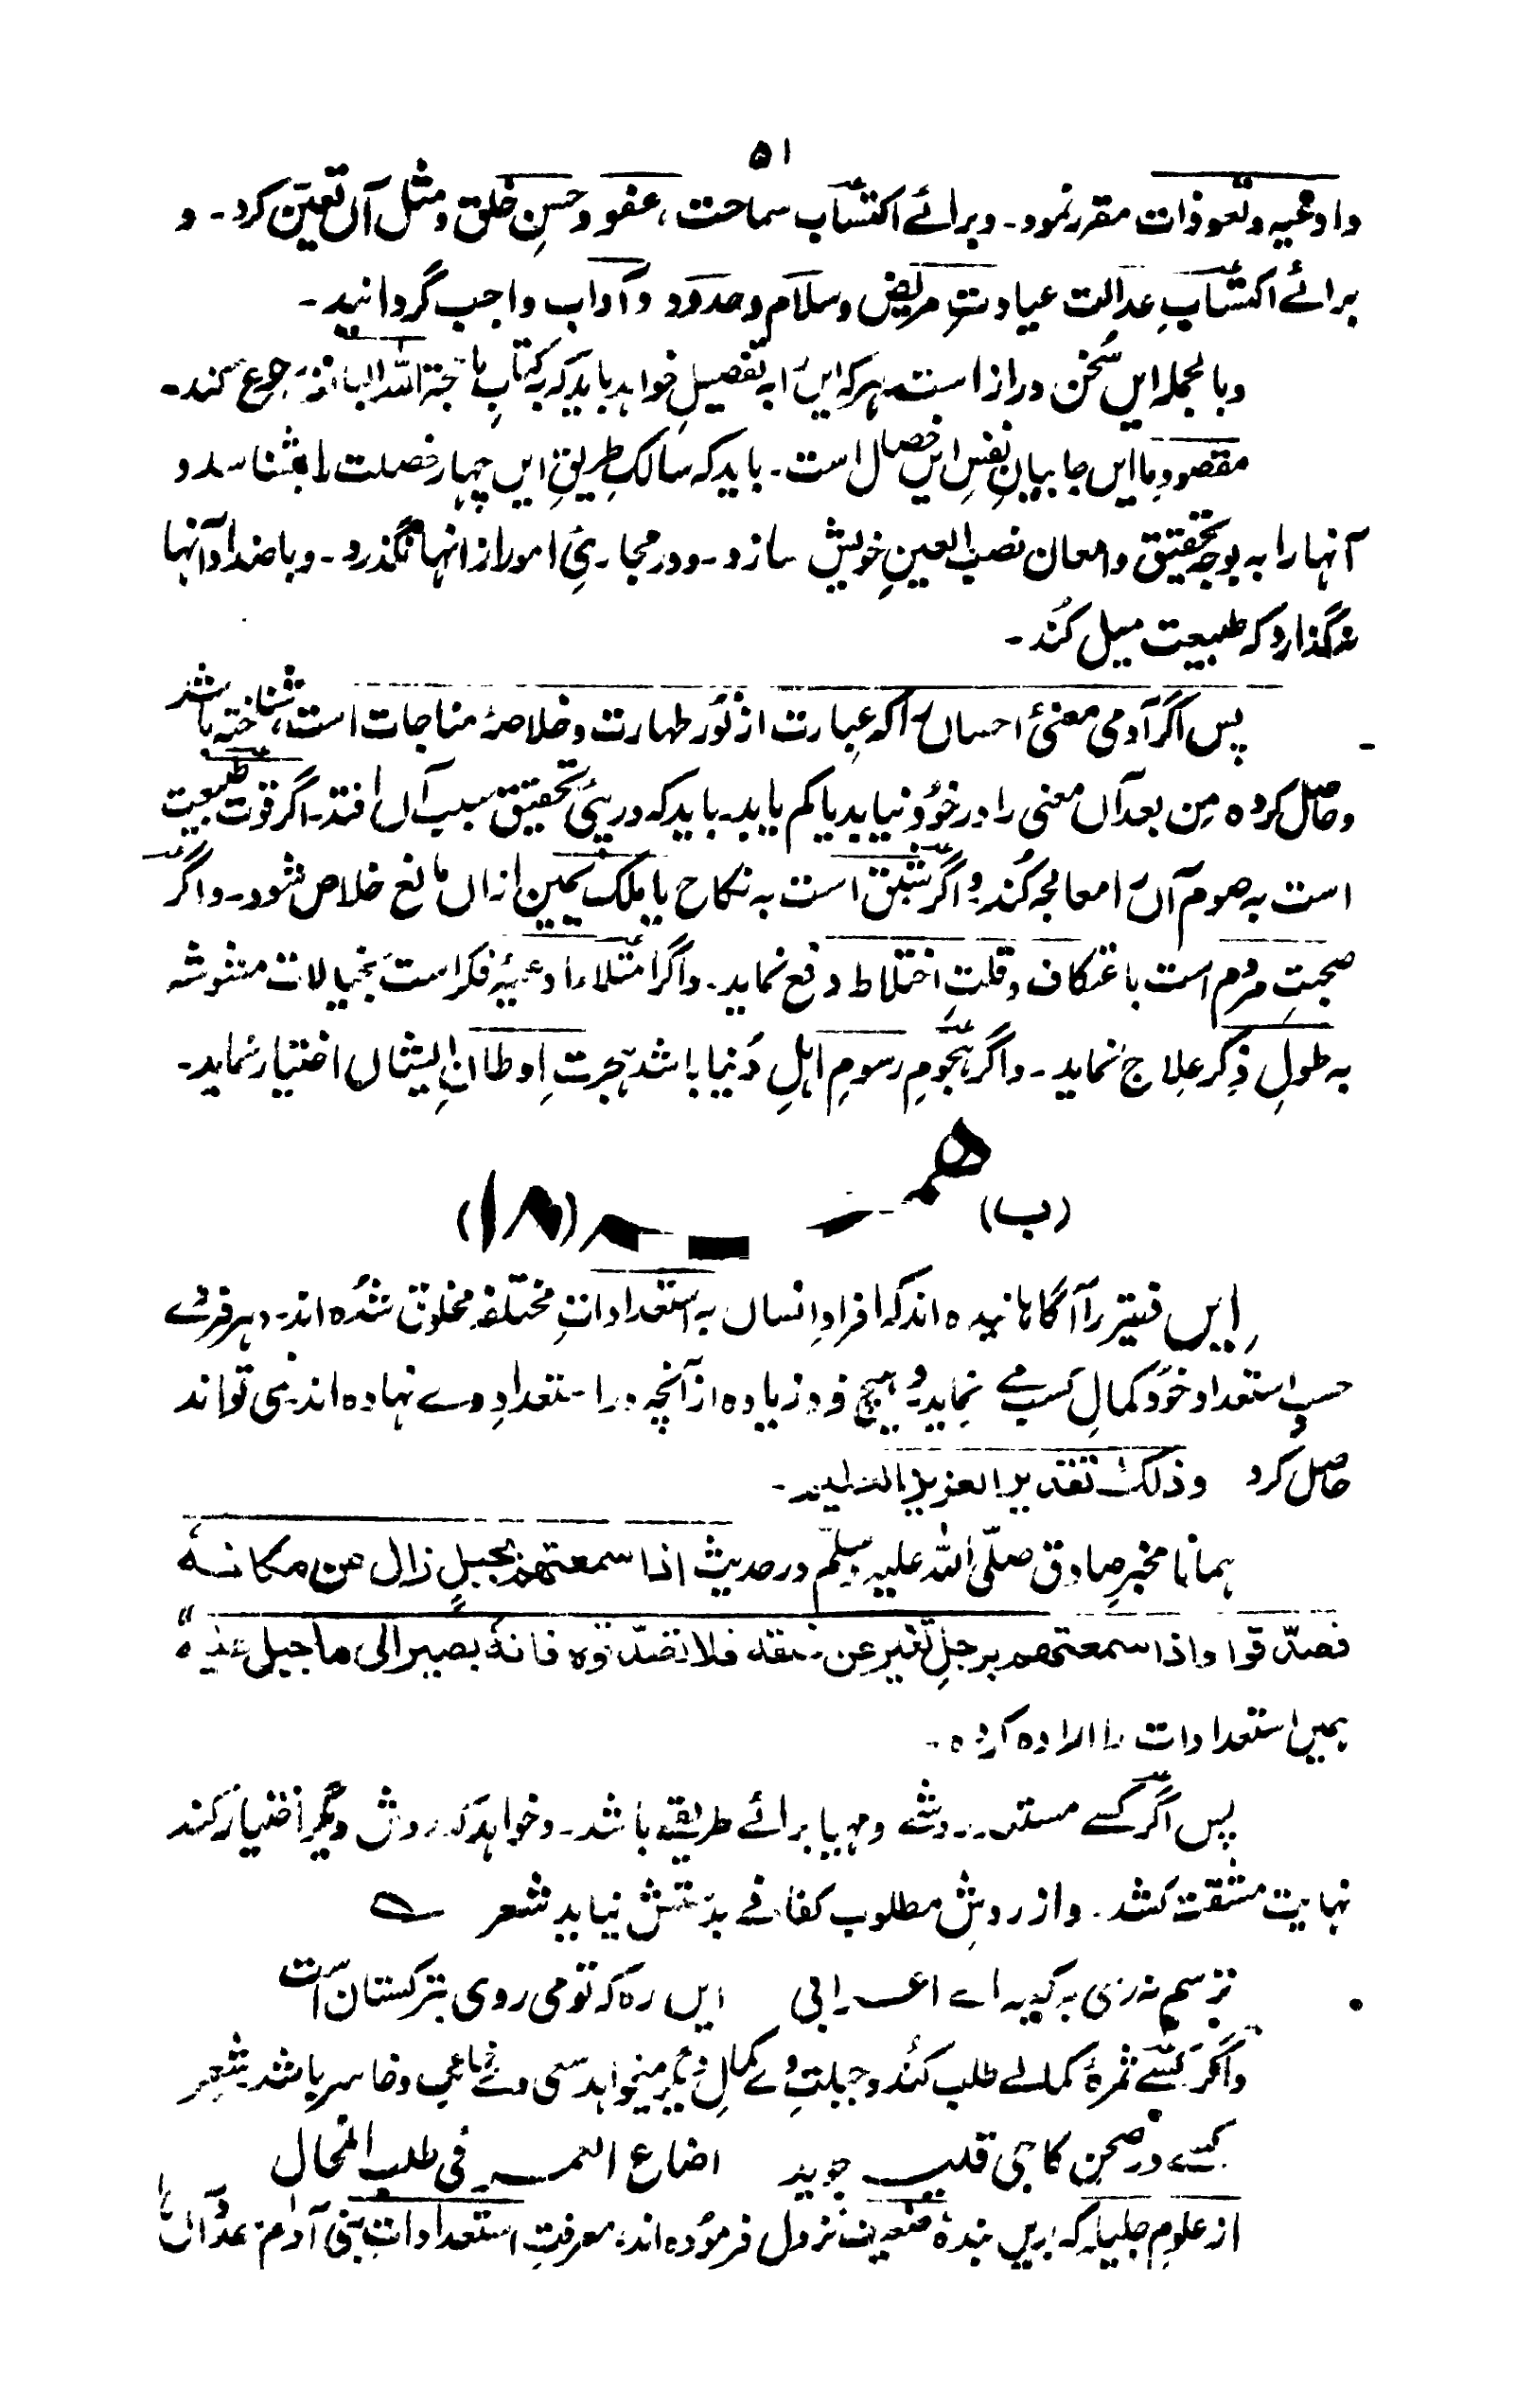 ۵۱
وادعیہ وتعوذات مقرر نمود۔ وبرائے اکتساب سماحت، عفو وحسنِ خلق ومثل آں تعیّن کرد۔ و
برائے اکتسابِ عدالت عیادتِ مریض وسلام وحدود وآداب واجب گردانید۔
وبالجملہ ایں سُخن دراز است ہر کہ ایں را بہ تفصیل خواہد باید کہ بہ کتابِ ما حجۃ اللہ البالغہ رجوع کند۔
مقصودِ ما ایں جا بیانِ نفسِ ایں خصال است۔ باید کہ سالکِ طریقِ ایں چہار خصلت را بشناسد و
آنہا را بہ بوجہِ تحقیق وامعان نصب العینِ خویش سازد۔ ودر مجاریِٔ امور ازانہا نگذرد۔ وباضداد آنہا
نہ گذارد کہ طبیعت میل کُند۔
پس اگر آدمی معنیٔ احسان را کہ عبارت از نُورِ طہارت وخلاصۂ مناجات است، شناختہ باشد
وحاصل کردہ مِن بعد آں معنی را در خوُد نیابد یا کم یابد۔ باید کہ در پیٔ تحقیق سبب آں افتد۔ اگر قوت طبیعت
است بہ صوم آں را معالجہ کُند، واگر شبق است بہ نکاح یا ملک یمین ازاں مانع خلاص شود۔ واگر
صحبتِ مردم است باعتکاف وقلتِ اختلاط دفع نماید۔ واگر امتلاء اوعیۂ فکر است بخیالات مشوشہ
بہ طولِ ذِکر علاج نماید۔ واگر ہجُومِ رسومِ اہلِ دُنیا باشد ہجرت اِوطانِ ایشاں اختیار نماید۔
(ب) (۱۸)
ایں فقیر را آگاہانیدہ اند کہ افرادِ انسان بہ استعداداتِ مختلفہ مخلوق شدُہ اند۔ وہر فردے
حسبِ استعداد خود کمالِ کسب مے نماید، وہیچ فرد زیادہ از آنچہ در استعدادِ وے نہادہ اند نمی تواند
حاصل کرد وذلک تقدیر العزیز العلیم۔
ہمانا مخبرِ صادق صلّی اللہ علیہ وسلّم در حدیث اذا سمعتم بجبلٍ زال من مکانہٖ
فصدّقوا واذا سمعتم برجلٍ تغیر عن خلقہ فلا تصدّقوہ فانہٗ یصیر الی ما جبل علیہ"
ہمیں استعدادات را ارادہ کردہ۔
پس اگر کسے روشے ومہیا برائے طریقے باشد۔ وخواہد کہ روش دیگر اختیار کند
نہایت مشقت کشد۔ واز روشِ مطلوب کفافے بدستش نیاید شعر ؎
ترسم نہ رسی بہ کعبہ اے اعرابی ایں رہ کہ تو می روی بترکستان است
واگر کسے ثمرۂ کمالے طلب کُند وجبلتِ وے کمالِ دیگر میخواہد سعی وے ضائع وخاسر باشد شعر
کسے در صحنِ کاچی قلیہ جوید اضاع العمر فی طلب المحال
از علومِ جلیلہ کہ بریں بندۂ ضعیف نزول فرموُدہ اند، معرفتِ استعداداتِ بنی آدم وعدد آں ہا